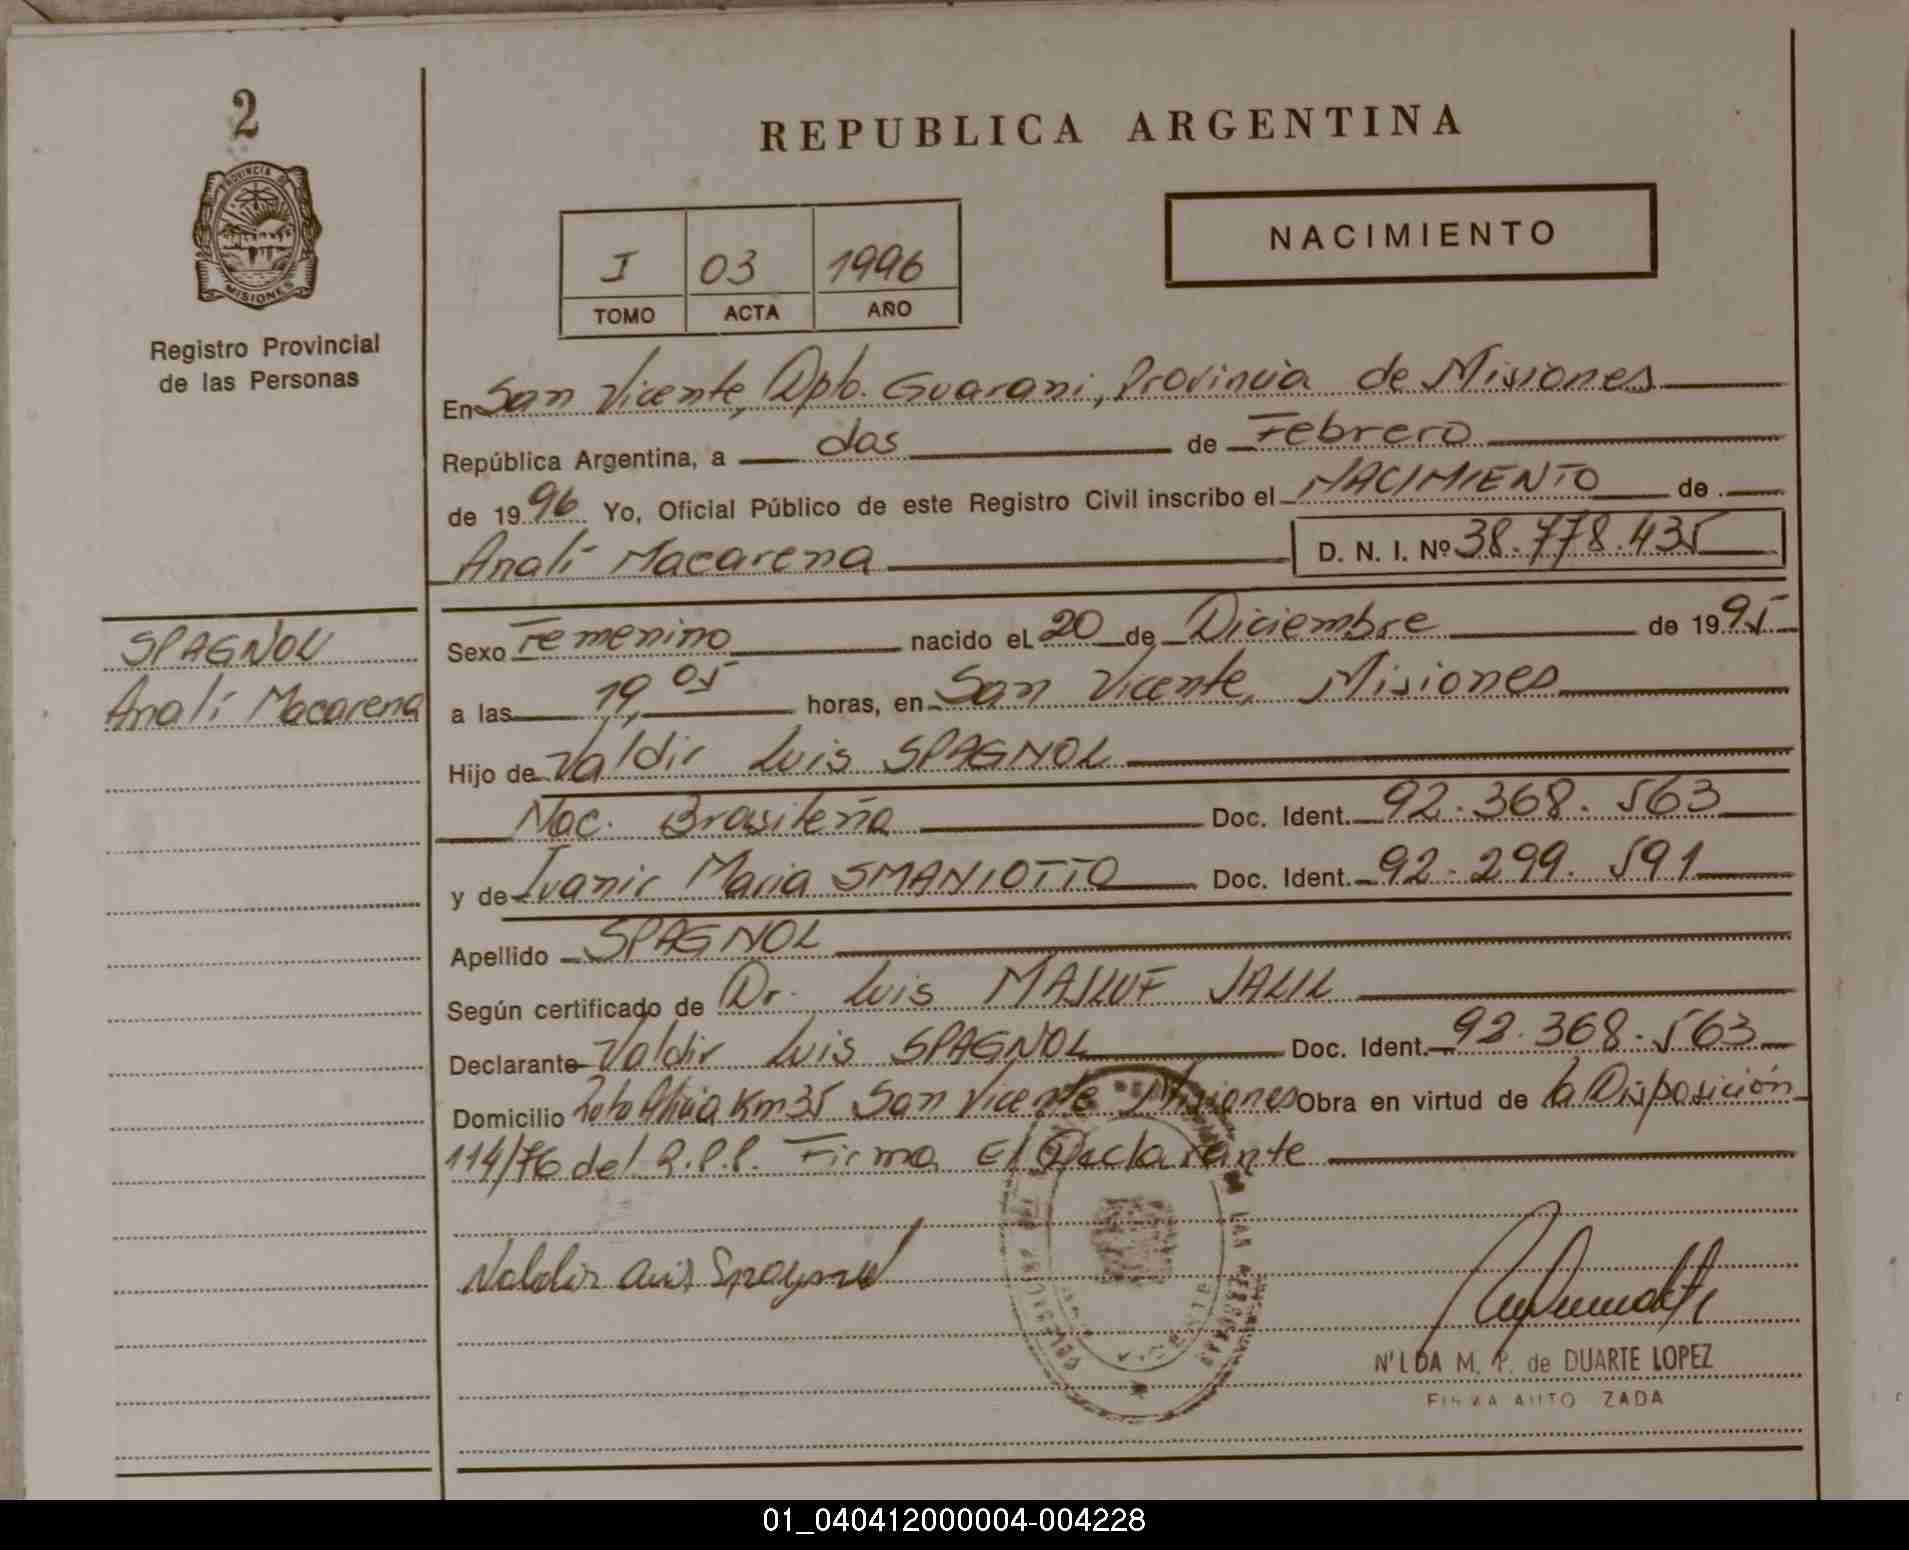 2
PROVINCIA DE
MISIONES
Registro Provincial
de las Personas
SPAGNOL
Analí Macarena
REPUBLICA ARGENTINA
I 03 1996
TOMO ACTA AÑO
NACIMIENTO
En San Vicente, Dpto. Guarani, Provincia de Misiones
República Argentina, a dos de Febrero
de 1996 Yo, Oficial Público de este Registro Civil inscribo el NACIMIENTO de
Analí Macarena D. N. I. Nº 38.778.435
Sexo Femenino nacido el 20 de Diciembre de 1995
a las 19,05 horas, en San Vicente, Misiones
Hijo de Valdir Luis SPAGNOL
Nac. Brasileña Doc. Ident. 92.368.563
y de Ivanir Maria SMANIOTTO Doc. Ident. 92.299.591
Apellido SPAGNOL
Según certificado de Dr. Luis MASLUF JALIL
Declarante Valdir Luis SPAGNOL Doc. Ident. 92.368.563
Domicilio Km 35 San Vicente Misiones Obra en virtud de la Disposición
114/76 del R.P.P. Firma El Declarante
Valdir Luis Spagnol
N'LDA M. P. de DUARTE LOPEZ
01_040412000004-004228